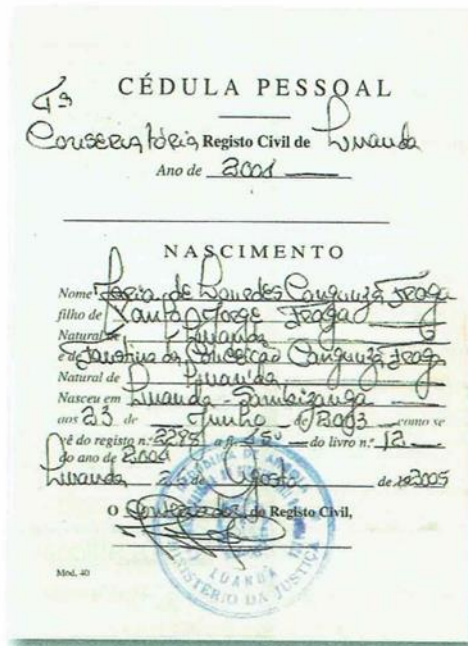 CÉDULA PESSOAL
Conservatória Registo Civil de Luanda
Ano de 2001
NASCIMENTO
Nome Maria de Lourdes Cangunza Fraga
filho de Santos Jorge Fraga
Natural de Luanda
e de Faustina da Conceição Cangunza Fraga
Natural de Luanda
Nasceu em Luanda - Sambizanga
aos 23 de Junho de 2003 como se
vê do registo n.º 2298 a fl. 45 do livro n.º 12
do ano de 2004
Luanda 25 de Agosto de 2005
O Conservador do Registo Civil,
REPÚBLICA DE ANGOLA
LUANDA
MINISTÉRIO DA JUSTIÇA
Mod. 40